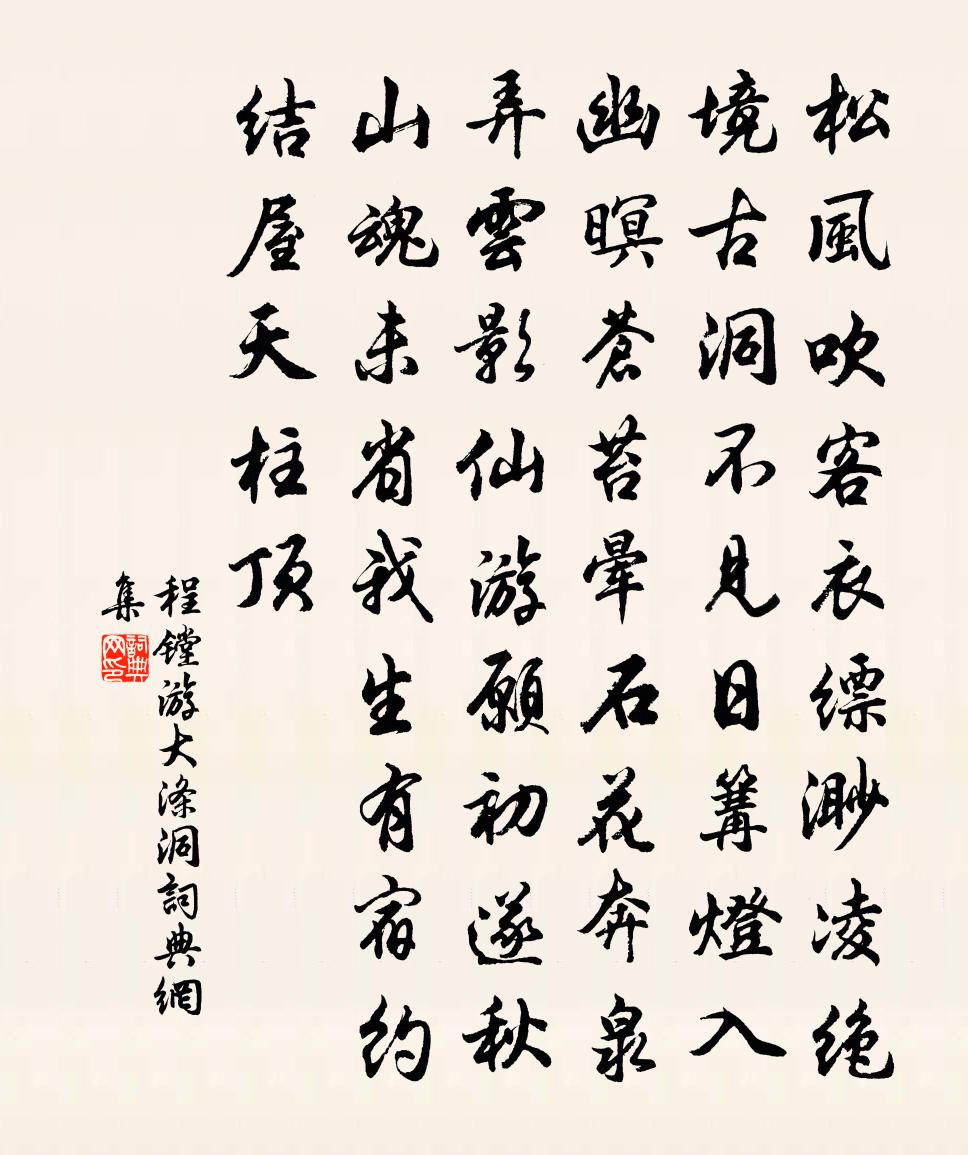 松風吹客衣縹渺凌絶
境古洞不見日篝燈入
幽暝蒼苔暈石花奔泉
弄雲影仙游願初遂秋
山魂未省我生有宿約
結屋天柱頂
程鏜游大滌洞詞典網
集
詞典
网印